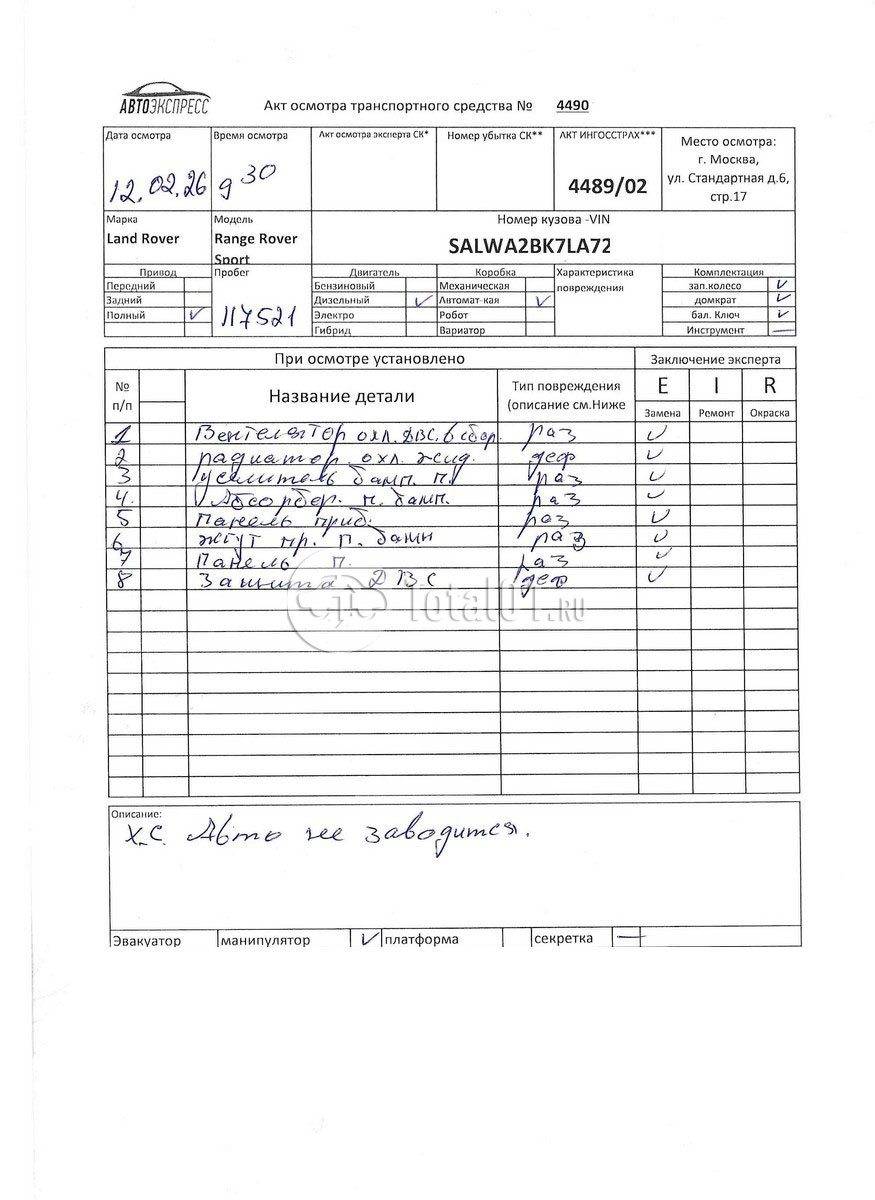 АВТОЭКСПРЕСС
Акт осмотра транспортного средства № 4490
Дата осмотра Время осмотра Акт осмотра эксперта СК* Номер убытка СК** АКТ ИНГОССТРАХ*** Место осмотра:
г. Москва,
ул. Стандартная д.6,
стр.17
12.02.26 9 30 4489/02
Марка Модель Номер кузова -VIN
Land Rover Range Rover Sport SALWA2BK7LA72
Привод Пробег Двигатель Коробка Характеристика повреждения Комплектация
Передний Бензиновый Механическая зап.колесо ✓
Задний Дизельный ✓ Автомат-кая ✓ домкрат ✓
Полный ✓ 117521 Электро Робот бал. Ключ ✓
Гибрид Вариатор Инструмент —
При осмотре установлено Заключение эксперта
№ п/п Название детали Тип повреждения (описание см.Ниже E I R
Замена Ремонт Окраска
1 Вентелятор охл. ДВС. в сбор. раз ✓
2 радиатор охл. жид. деф ✓
3 усилитель бамп. п. раз ✓
4. Абсорбер. п. бамп. раз ✓
5 Панель приб. раз ✓
6 жгут пр. п. бамп раз ✓
7 Панель п. раз ✓
8 Защита ДВС деф ✓
Total01.RU
Описание:
Х.С. Авто не заводится.
Эвакуатор манипулятор ✓ платформа секретка —